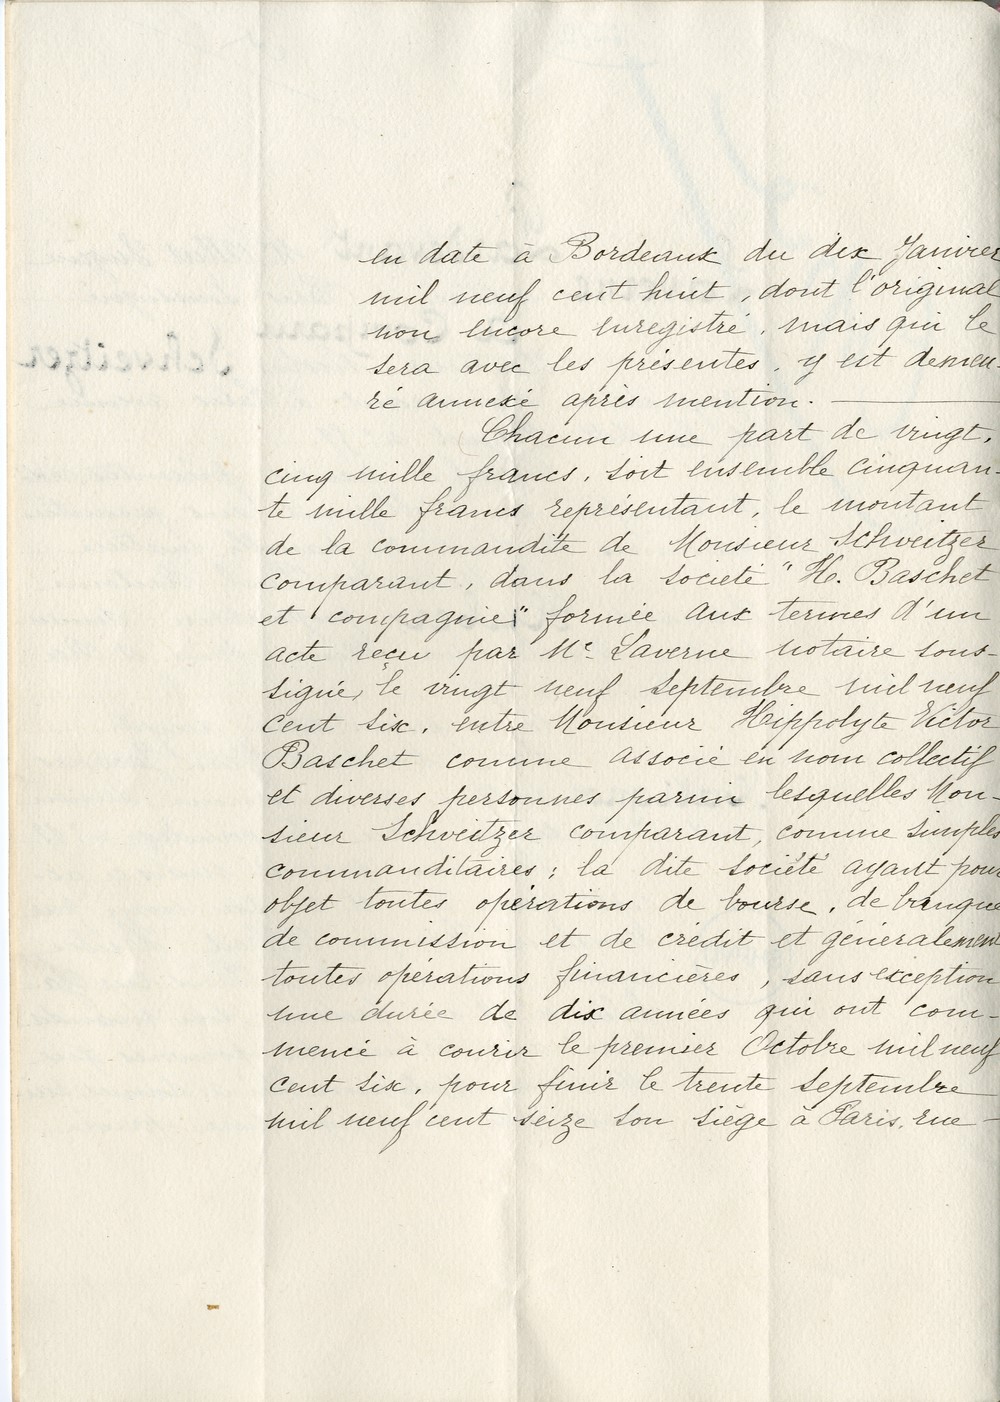 en date à Bordeaux du dix Janvier
mil neuf cent huit, dont l'original
non encore enregistré, mais qui le
sera avec les présentes, y est demeu-
ré annexé après mention. —
Chacun une part de vingt-
cinq mille francs, soit ensemble cinquan-
te mille francs représentant, le montant
de la commandite de Monsieur Schweitzer
comparant, dans la société "H. Baschet
et compagnie" formée aux termes d'un
acte reçu par Me Laverne notaire sous-
signé, le vingt neuf septembre mil neuf
cent six, entre Monsieur Hippolyte Victor
Baschet comme associé en nom collectif
et diverses personnes parmi lesquelles Mon-
sieur Schweitzer comparant, comme simples
commanditaires; la dite société ayant pour
objet toutes opérations de bourse, de banque
de commission et de crédit et généralement
toutes opérations financières, sans exception
une durée de dix années qui ont com-
mencé à courir le premier Octobre mil neuf
cent six, pour finir le trente septembre
mil neuf cent seize son siège à Paris, rue —